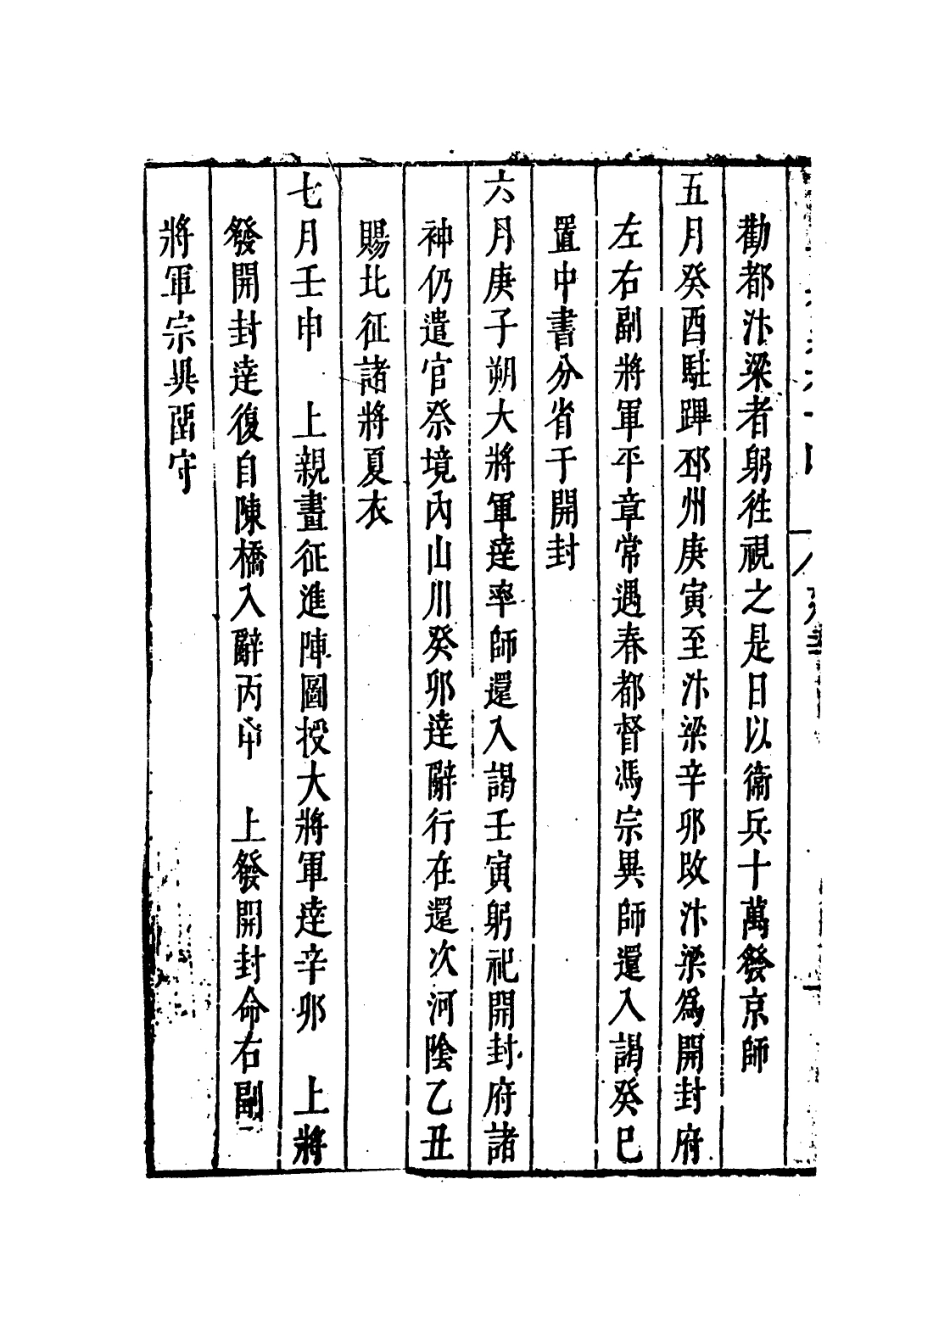 勸都汴梁者躬徃視之是日以衞兵十萬發京師
五月癸酉駐蹕邳州庚寅至汴梁辛卯改汴梁爲開封府
左右副將軍平章常遇春都督馮宗異師還入謁癸巳
置中書分省于開封
六月庚子朔大將軍達率師還入謁壬寅躬祀開封府諸
神仍遣官祭境內山川癸卯達辭行在還次河陰乙丑
賜北征諸將夏衣
七月壬申　上親畫征進陣圖授大將軍達辛卯　上將
發開封達復自陳橋入辭丙申　上發開封命右副
將軍宗異留守